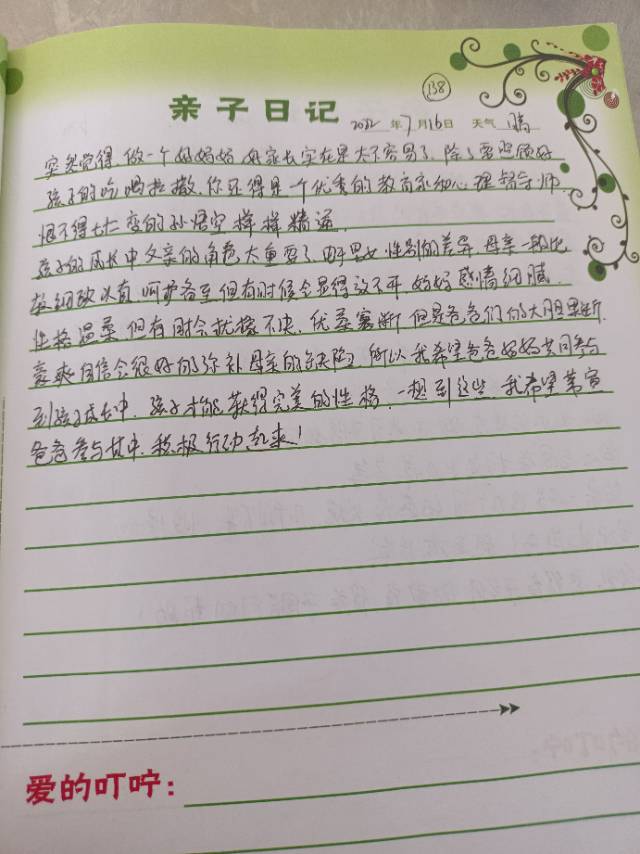 138
亲子日记
2022年7月16日 天气 晴
突然觉得,做一个好妈妈 好家长实在是太不容易了,除了要照顾好
孩子的吃喝拉撒,你还得是一个优秀的教育家幼心理督导师,
恨不得七十二变的孙悟空样样精通.
孩子的成长中父亲的角色太重要了,由于男女性别的差异,母亲一般比
较细致认真 呵护备至但有时候会显得放不开,妈妈感情细腻
性格温柔 但有时会犹豫不决,优柔寡断 但是爸爸们的大胆果断
豪爽自信会很好的弥补母亲的缺陷,所以我希望爸爸妈妈共同参与
到孩子成长中,孩子才能获得完美的性格,一想到这些,我希望
爸爸参与其中,积极行动起来!
爱的叮咛: